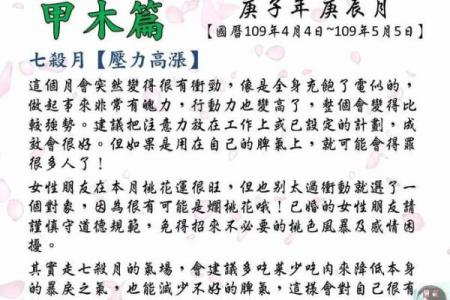 甲木篇
庚子年庚辰月
【國曆109年4月4日~109年5月5日】
七殺月【壓力高漲】
這個月會突然變得很有衝勁，像是全身充飽了電似的，
做起事來非常有魄力，行動力也變高了，整個會變得比
較強勢。建議把注意力放在工作上或已設定的計劃，成
效會很好。但如果是用在自己的脾氣上，就可能會得罪
很多人了！
女性朋友在本月桃花運很旺，但也別太過衝動就選了一
個對象，因為很有可能是爛桃花哦！已婚的女性朋友請
謹慎守道德規範，免得招來不必要的桃色風暴及感情困
擾。
其實走七殺月的氣場，會建議多吃菜少吃肉來降低本身
的暴戾之氣，也能減少不好的脾氣，這樣會對自己很有